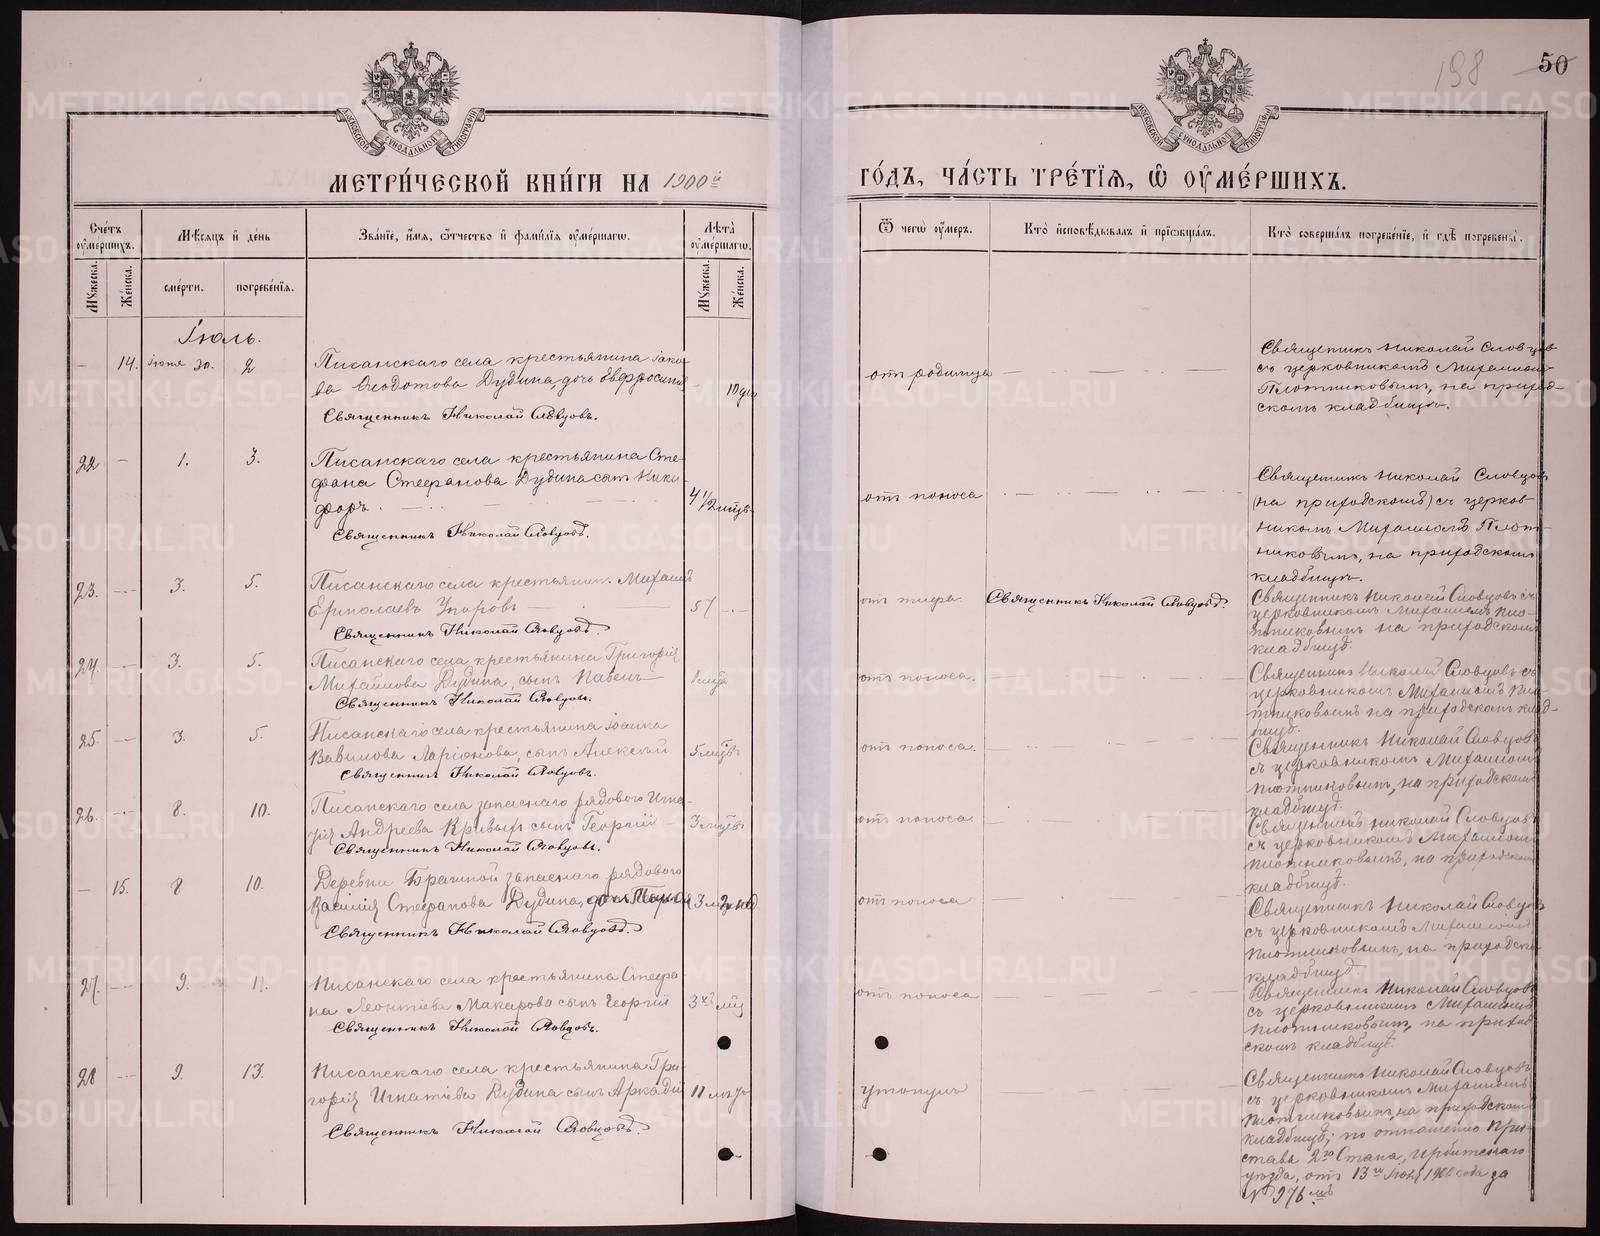 198 50
МЕТРИ́ЧЕСКОЙ КНИ́ГИ НА 1900й
ГО́ДЪ, ЧА́СТЬ ТРЕ́ТІѦ, Ѽ ОУМЕ́РШИХЪ.
Сче́тъ оуме́ршихъ.
Мѣ́сѧцъ и҆ де́нь
Зва́ніе, и҆́мѧ, ѻ҆́тчество и҆ фами́ліѧ оуме́ршагѡ.
Лѣ́та оуме́ршагѡ.
Ѿ чегѡ̀ оу҆́меръ.
Кто̀ и҆сповѣ́дывалъ и҆ прїѡбща́лъ.
Кто̀ соверша́лъ погребе́ніе, и҆ гдѣ̀ погребены̀.
Му́жеска.
Же́нска.
сме́рти.
погребе́нїѧ.
Му́жеска.
Же́нска.
Іюль.
— 14. Іюня 30. 2
Писанскаго села крестьянина Іако-
ва Ѳеодотова Дудина, дочь Евфросинія
Священникъ Николай Словцовъ.
— 10 дн
отъ родимца
Священникъ Николай Словцовъ
съ церковникомъ Михаиломъ
Плотниковымъ, на приход-
скомъ кладбищѣ.
22 — 1. 3.
Писанскаго села крестьянина Сте-
фана Стефанова Дудина сынъ Ники-
форъ.
Священникъ Николай Словцовъ.
4 1/2 мѣс
отъ поноса
Священникъ Николай Словцовъ
(на приходскомъ) съ церков-
никомъ Михаиломъ Плот-
никовымъ, на приходскомъ
кладбищѣ.
23. — 3. 5.
Писанскаго села крестьянин. Михаилъ
Ермолаевъ Упоровъ
Священникъ Николай Словцовъ.
57 —
отъ тифа.
Священникъ Николай Словцовъ.
Священникъ Николай Словцовъ съ
церковникомъ Михаиломъ Пло-
тниковымъ на приходскомъ
кладбищѣ.
24 — 3. 5.
Писанскаго села крестьянина Григорія
Михаилова Дудина, сынъ Павелъ
Священникъ Николай Словцовъ.
отъ поноса.
Священникъ Николай Словцовъ съ
церковникомъ Михаиломъ Пло-
тниковымъ на приходскомъ клад-
бищѣ.
25. — 3. 5.
Писанскаго села крестьянина Іоанна
Вавилова Ларіонова, сынъ Алексѣй
Священникъ Николай Словцовъ.
5 мѣс
отъ поноса.
Священникъ Николай Словцовъ
съ церковникомъ Михаиломъ
Плотниковымъ, на приходскомъ
кладбищѣ.
26. — 8. 10.
Писанскаго села запаснаго рядового Игна-
тія Андреева Кривыхъ сынъ Георгій
Священникъ Николай Словцовъ.
3 мѣс
отъ поноса.
Священникъ Николай Словцовъ
съ церковникомъ Михаиломъ
Плотниковымъ, на приходском
кладбищѣ.
— 15. 8 10.
Деревни Бражной запаснаго рядового
Василія Стефанова Дудина, дочь
Священникъ Николай Словцовъ.
отъ поноса
Священникъ Николай Словцовъ
съ церковникомъ Михаиломъ
Плотниковымъ, на приходско
кладбищѣ.
27. — 9. 11.
Писанскаго села крестьянина Стефа-
на Леонтіева Макарова сынъ Георгій
Священникъ Николай Словцовъ.
3хъ мѣс
отъ поноса
Священникъ Николай Словцовъ
съ церковникомъ Михаиломъ
Плотниковымъ, на приход-
скомъ кладбищѣ.
28 — 9. 13.
Писанскаго села крестьянина Гри-
горія Игнатіева Дудина сынъ Аркадій
Священникъ Николай Словцовъ.
11 лѣтъ
утонулъ
Священникъ Николай Словцовъ
съ церковникомъ Михаиломъ
Плотниковымъ, на приходскомъ
кладбищѣ; по отношенію При-
става 2го Стана, Ирбитскаго
уѣзда, отъ 13го Іюля 1900 года за
№ 976 мъ
METRIKI.GASO-URAL.RU